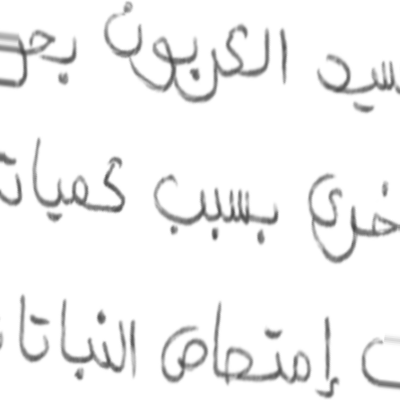 سيد الكربون بحو
خرى بسبب كميات
إمتصاص النباتا